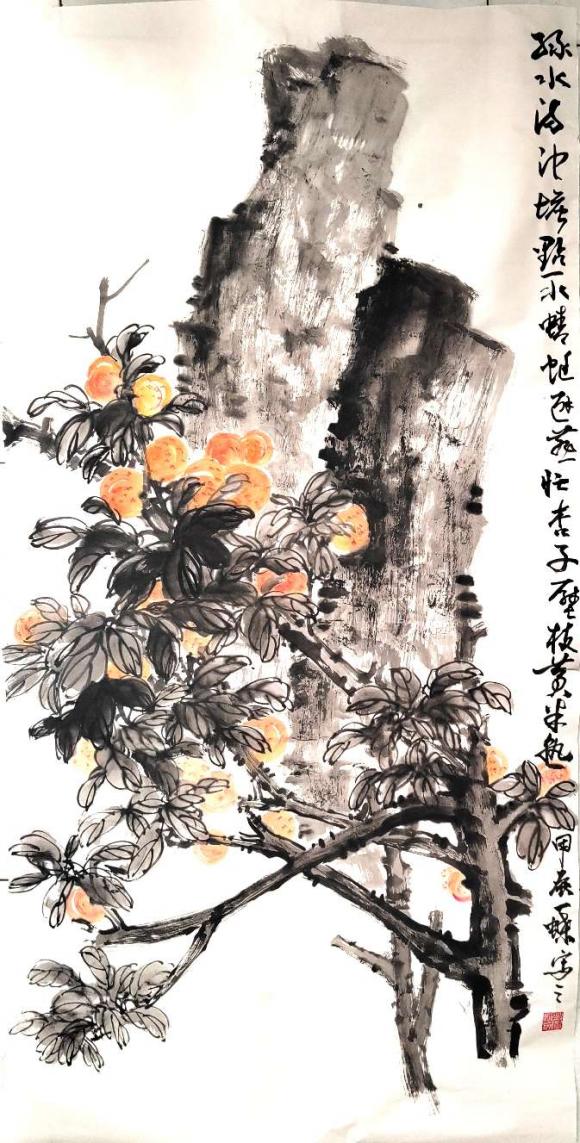 绿水满池塘點水蜻蜓避燕忙杏子壓枝黄半熟
甲辰一蝶寫之